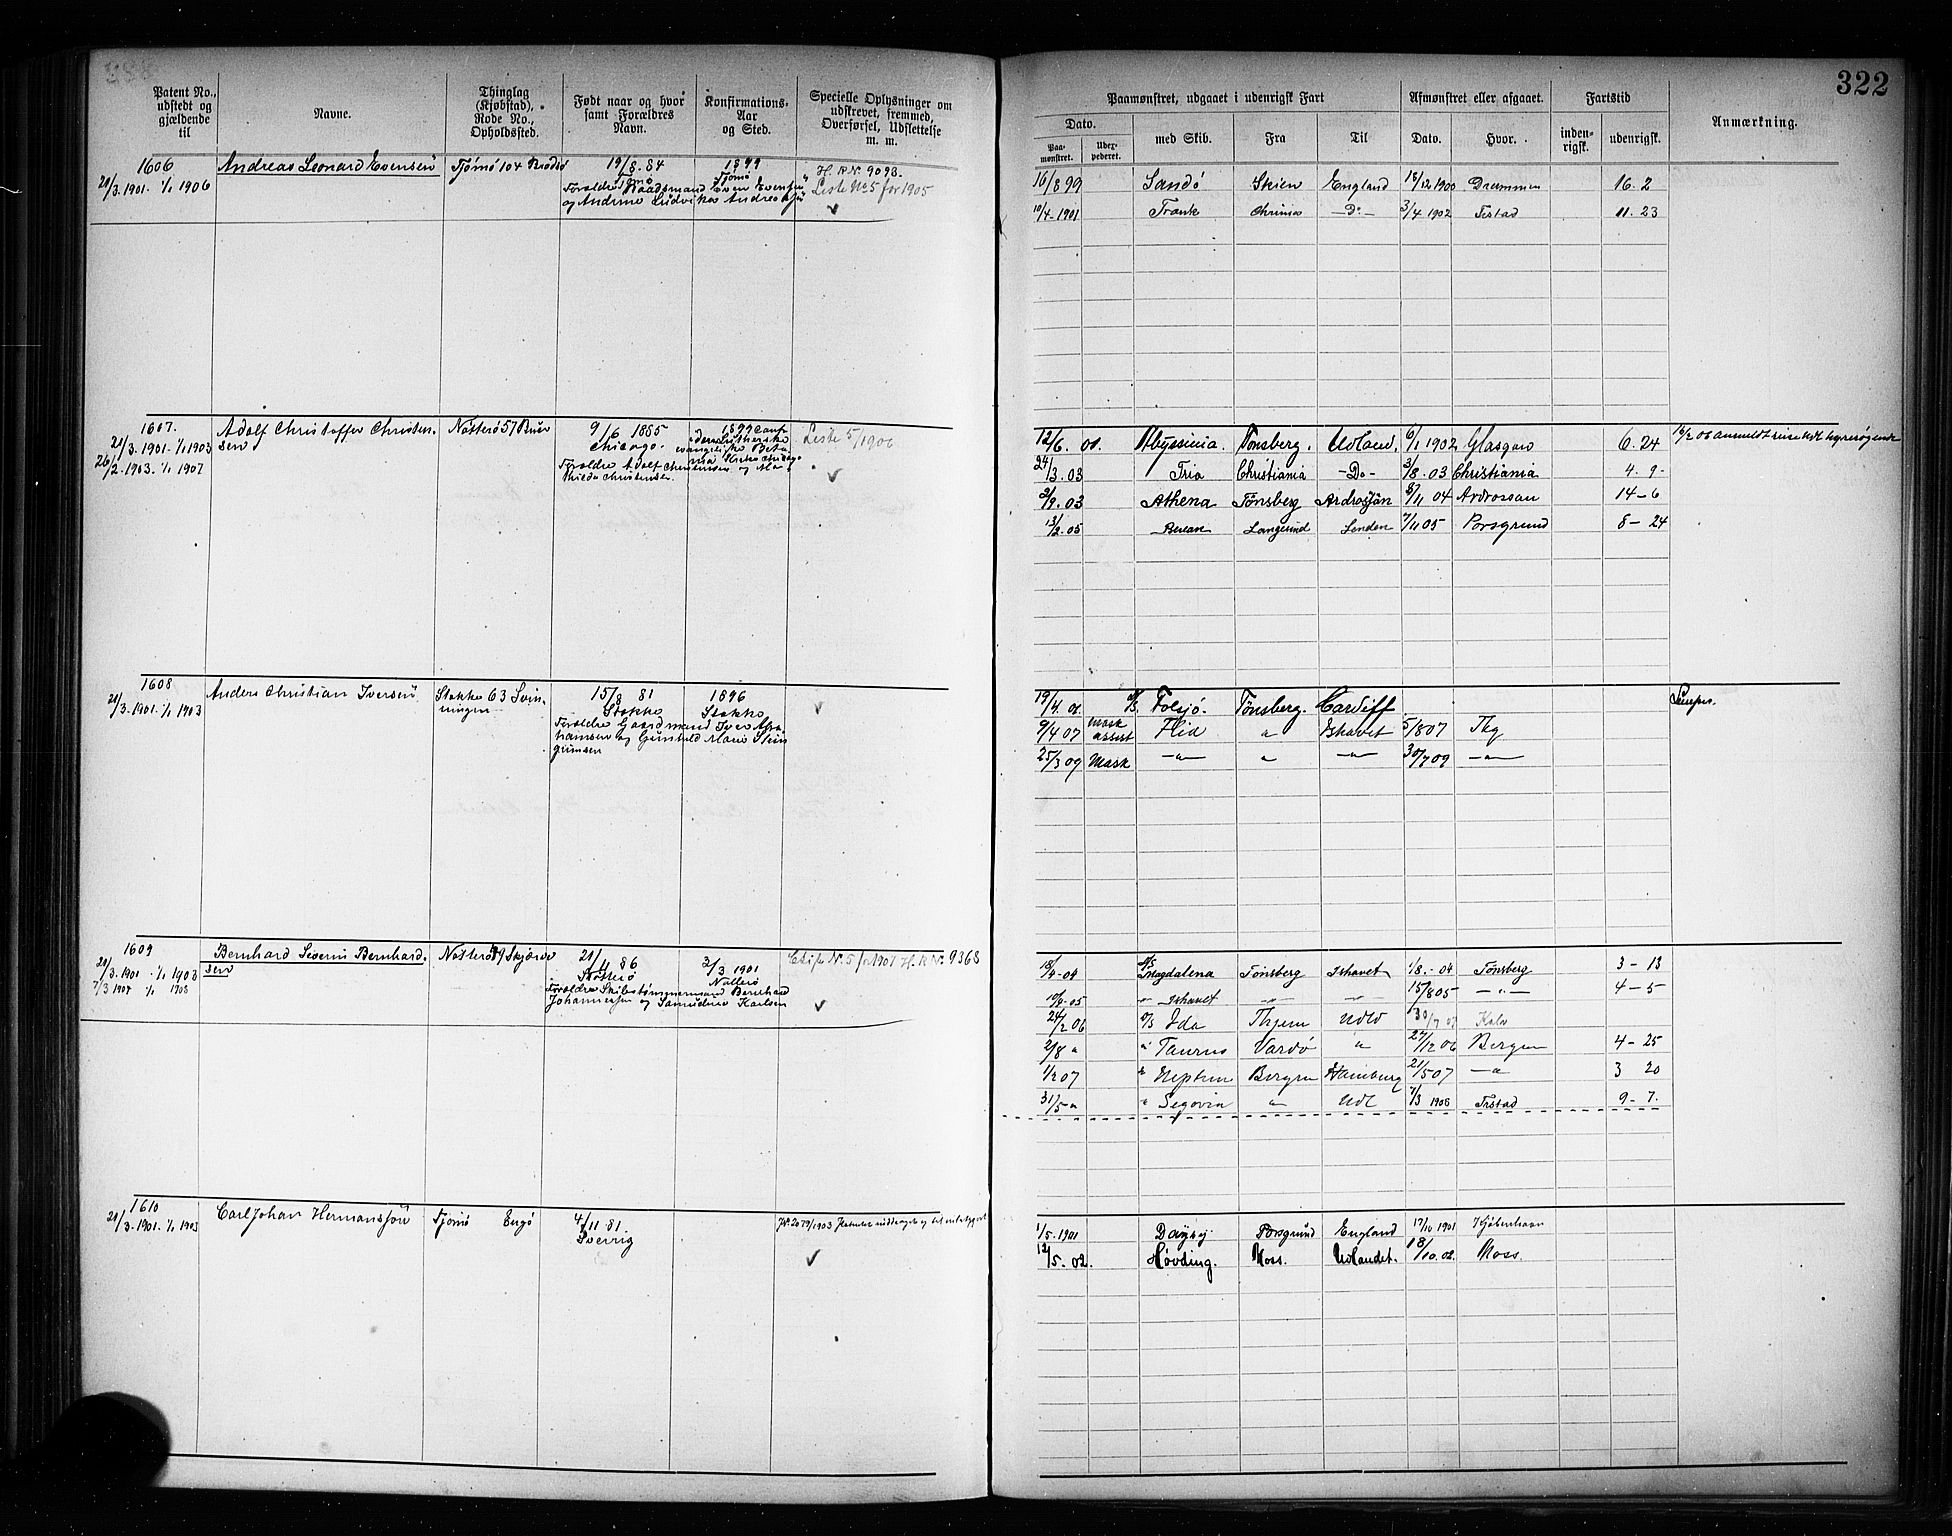 322
Patent No., udstedt og gjældende til
Navne.
Thinglag (Kjøbstad), Rode No., Opholdssted.
Født naar og hvor samt Forældres Navn.
Konfirmations- Aar og Sted.
Specielle Oplysninger om udskrevet, fremmed, Overførsel, Udslettelse m. m.
Paamønstret, udgaaet i udenrigsk Fart
Afmønstret eller afgaaet.
Fartstid
Anmærkning.
Dato.
med Skib.
Fra
Til
Dato.
Hvor.
inden- rigsk.
udenrigsk.
Paa- mønstret.
1606
21/3.1901. 1/1 1906
Andreas Leonard Evensen
Tjømø 104 Brødsø
19/8.84
Tjømø
Forældre Evensen
og Andrine Ludvikka
1899
Tjømø
H. R. Nr. 9093.
Liste No 5 for 1905
16/8 99 Sandö Skien England 18/12 1900 Drammen 16. 2
10/4-1901 Frank — Do — 3/4 1902 Frstad 11. 23
1607.
21/3.1901. 1/1 1903
26/2.1903. 1/1 1907
Adolf Christoffer Christen.
sen
Nøtterö 57
9/6 1885
Chicago.
Forældre Adolf Christensen og
Christensen.
1899 Conf
Lutherske
evangeliske
Liste 5/1906
12/6. 01. Abyssinia. Tönsberg. Udland. 6/1 1902 Glasgow 6. 24
24/3.03 Tria Christiania — Do — 3/8.03 Christiania 4. 9 -
2/9.03 Athena Tönsberg Ardrossan 8/11 04 Ardrossan 14 - 6
13/2.05 Langesund London 7/11 05 Porsgrund 8 - 24
1608
21/3.1901. 1/1 1903
Anders Christian Iversen
Stokke 63 Svin-
ningen
15/9 81
Stokke
Forældre Gaardmand Iver Abra-
hamsen og Gunhild Marie Stein
grimsen
1896
Stokke
19/4.01 Folsjö. Tönsberg. Cardiff
9/4 07 Mask assist Flid " Ishavet 5/8 07 Tbg
25/3 09 Mask — " — " — " — 30/7 09 — " —
1609
21/3.1901. 1/1 1903
7/3 1907 1/1 1908
Bernhard Severin Bernhard.
sen
Nøtterö 99 Skjærsø
21/11 86
Nøtterö
Forældre Skibstømmermand Bernhard
Johannessen og Samudine Karlsen
3/3 1901
Nøtterö
Liste Nr. 5 for 1907 H. R. Nr. 9368
18/4-04 Magdalena Tönsberg Ishavet 1/8.-04 Tönsberg 3 - 13
10/6.05 " Ishavet — " — — " — 15/8 05 — " — 4 - 5
24/2 06 Ida Thjem Udld 30/7 07
2/8 " " Taurus Vardö " 27/12 06 Bergen 4 - 25
1/2 07 " Neptun Bergen Hamburg 21/5 07 — " 3 20
31/5 " " Segovia " Udl 7/3 1908 Frstad 9 - 7.
1610
21/3.1901. 1/1 1903
Carl Johan Hermansson
Tjömö Engö
4/11 81.
Sverrig
1/5.1901 Daysy Porsgrund England 17/10 1901 Kjöbenhavn
12/5.02. Hövding. Moss. Udlandet. 18/10.02. Moss.